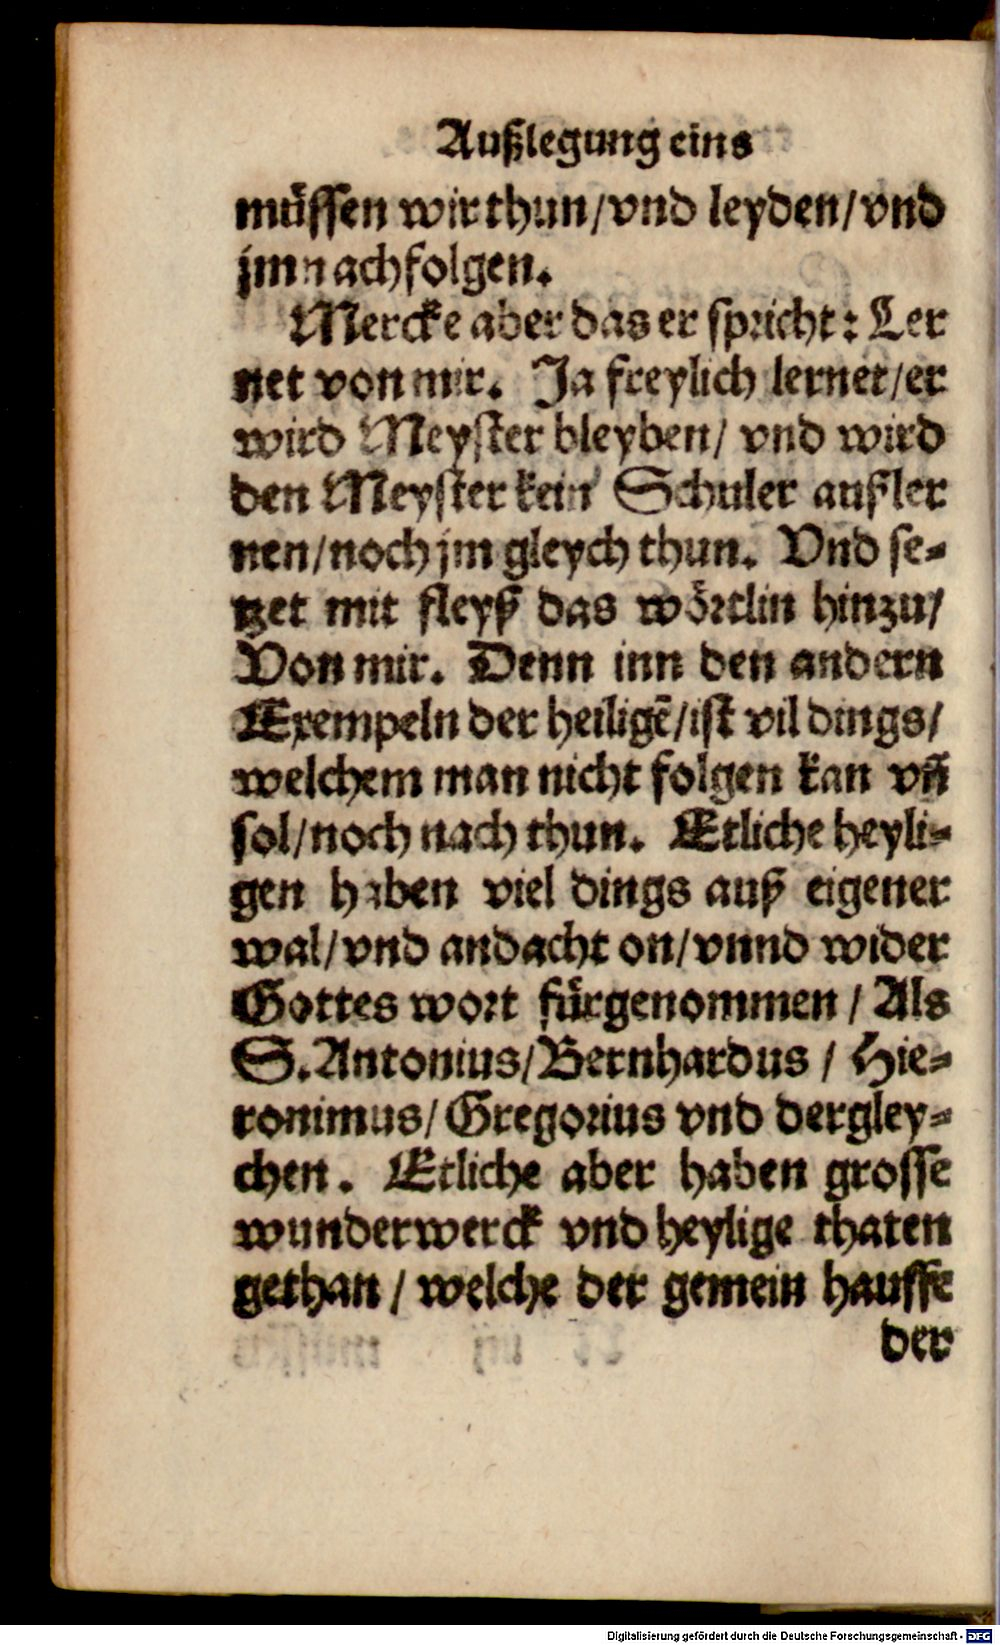 Außlegung eins
müssen wir thun/vnd leyden/vnd
jm nachfolgen.
Mercke aber das er spricht: Ler
net von mir. Ja freylich lernet/er
wird Meyster bleyben/ vnd wird
den Meyster kein Schuler außler
nen/noch jm gleych thun. Vnd se-
tzet mit fleyß das wörtlin hinzu/
Von mir. Denn inn den andern
Exempeln der heiligē/ist vil dings/
welchem man nicht folgen kan vñ
sol/noch nach thun. Etliche heyli-
gen haben viel dings auß eigener
wal/vnd andacht on/vnnd wider
Gottes wort fürgenommen / Als
S. Antonius/Bernhardus / Hie-
ronimus/Gregorius vnd dergley-
chen. Etliche aber haben grosse
wunderwerck vnd heylige thaten
gethan / welche der gemein hauffe
der
Digitalisierung gefördert durch die Deutsche Forschungsgemeinschaft - DFG